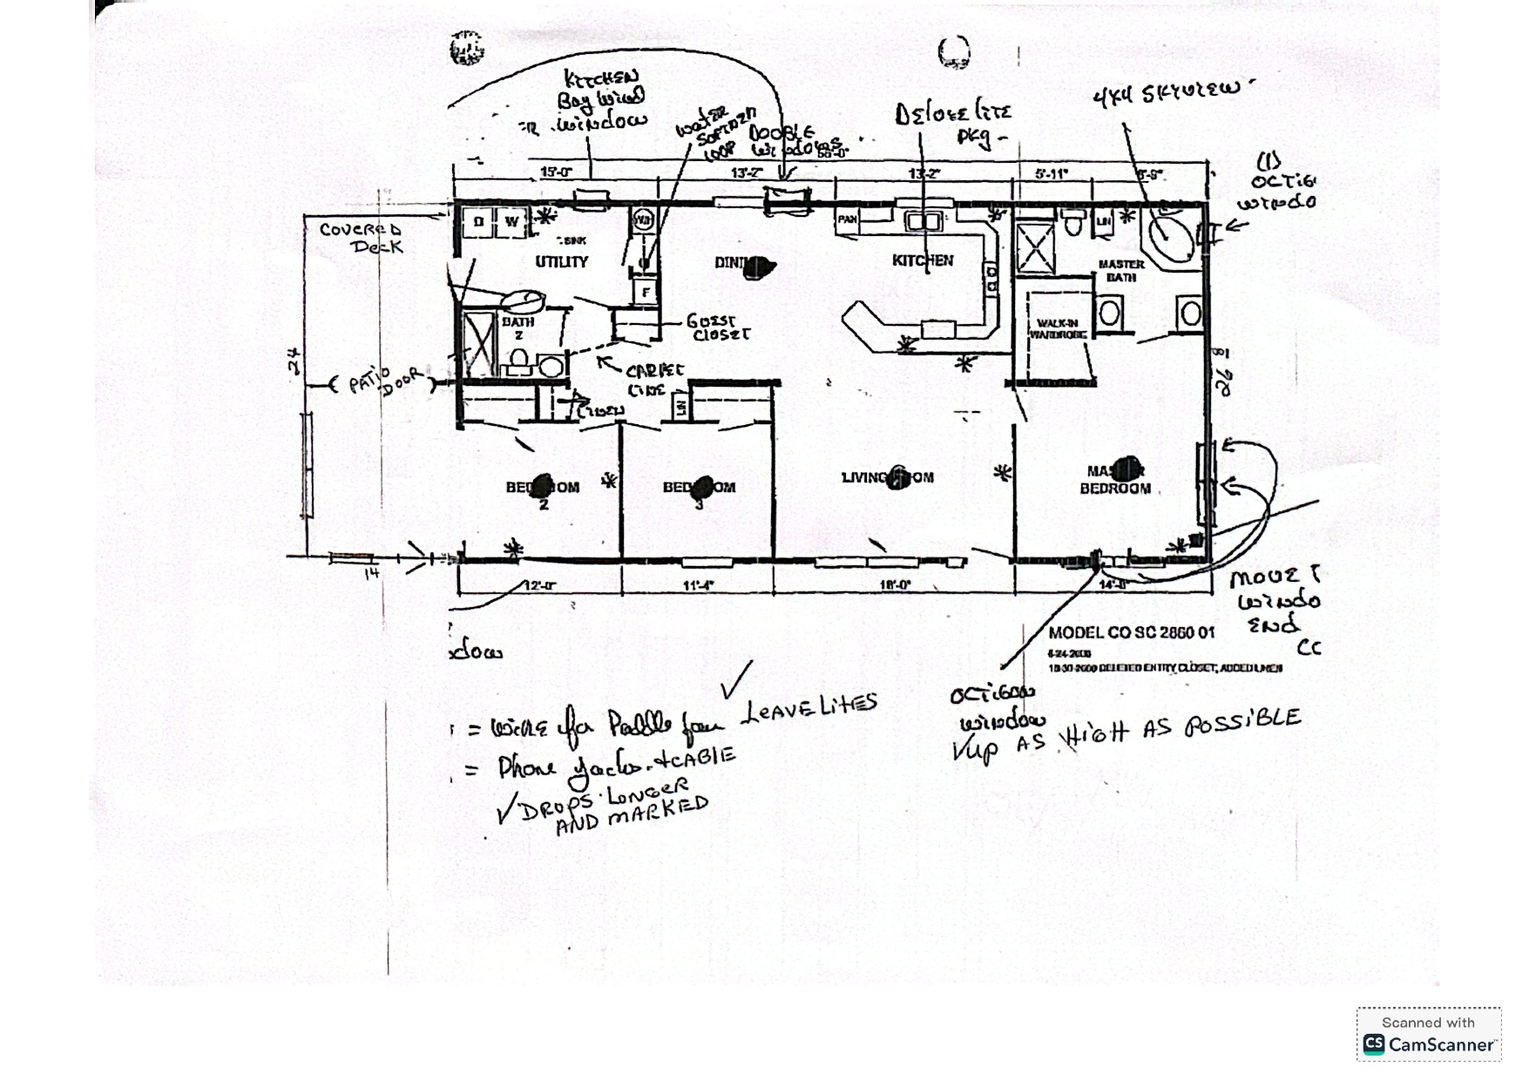 KITCHEN
Bay Wind
window
WATER
SOFTNER
LOOP
DOUBLE
windows
DELUXE LITE
PKG-
4x4 SKYVIEW
(1)
OCTIG
windo
15'-0"
13'-2"
13'-2"
5'-11"
COVERED
DECK
D
W
SINK
UTILITY
WH
F
DINI
PAN
KITCHEN
LIN
MASTER
BATH
BATH
2
GUEST
CLOSET
WALK-IN
WARDROBE
24
PATIO
DOOR
CARPET
LINE
LINEN
LIN
26'8
BED OM
2
BED OM
3
LIVING OM
MAS R
BEDROOM
14
12'-0"
11'-4"
18'-0"
14'-8"
MOVE
windo
END
CO
dow
MODEL CO SC 2860 01
8-24-2000
10-30-2000 DELETED ENTRY CLOSET, ADDED LINEN
= wire for Paddle fan LEAVE LITES
= Phone jacks + CABLE
DROPS LONGER
AND MARKED
OCTIGON
window
UP AS HIGH AS POSSIBLE
Scanned with
CS CamScanner